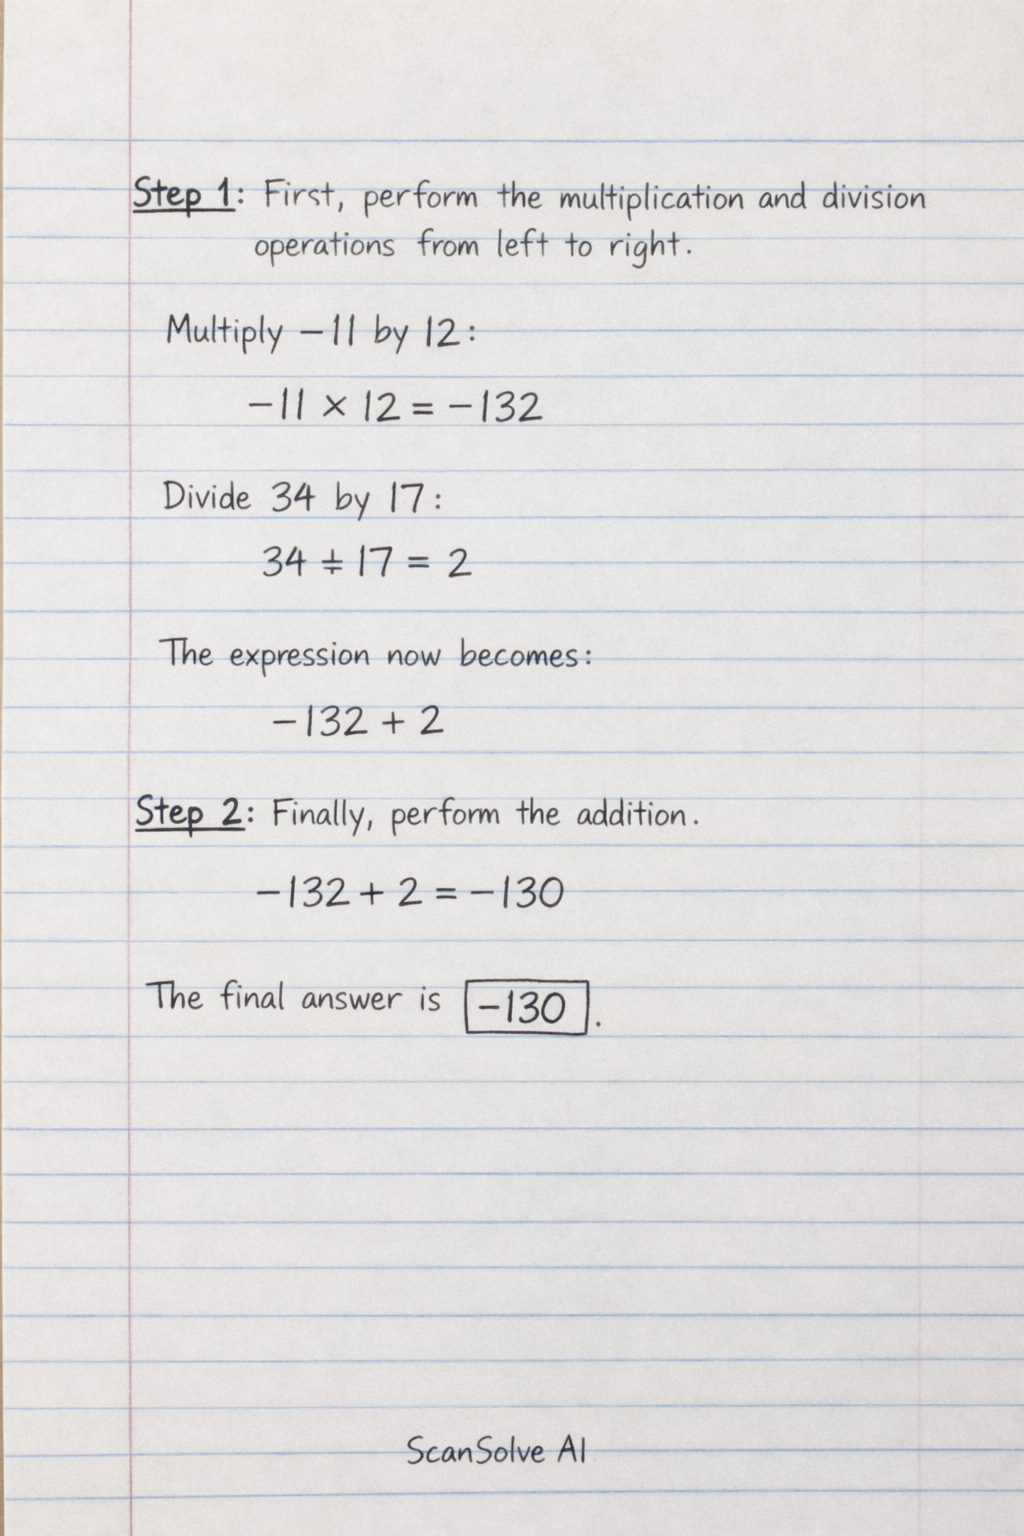 Step 1: First, perform the multiplication and division
operations from left to right.
Multiply −11 by 12:
−11 × 12 = −132
Divide 34 by 17:
34 ÷ 17 = 2
The expression now becomes:
−132 + 2
Step 2: Finally, perform the addition.
−132 + 2 = −130
The final answer is −130.
ScanSolve AI